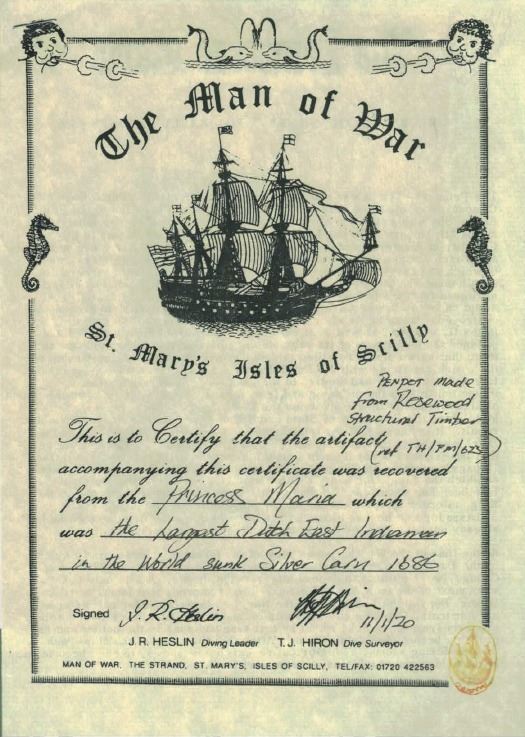 The Man of War
St. Mary's Isles of Scilly
Penpot made
from Rosewood
structural Timber
(ref TH/PM/623)
This is to Certify that the artifact
accompanying this certificate was recovered
from the Princess Maria which
was the Largest Dutch East Indiaman
in the World sunk Silver Carn 1686
Signed J.R. Heslin
11/1/20
J.R. HESLIN Diving Leader T.J. HIRON Dive Surveyor
MAN OF WAR, THE STRAND, ST. MARY'S, ISLES OF SCILLY, TEL/FAX: 01720 422563